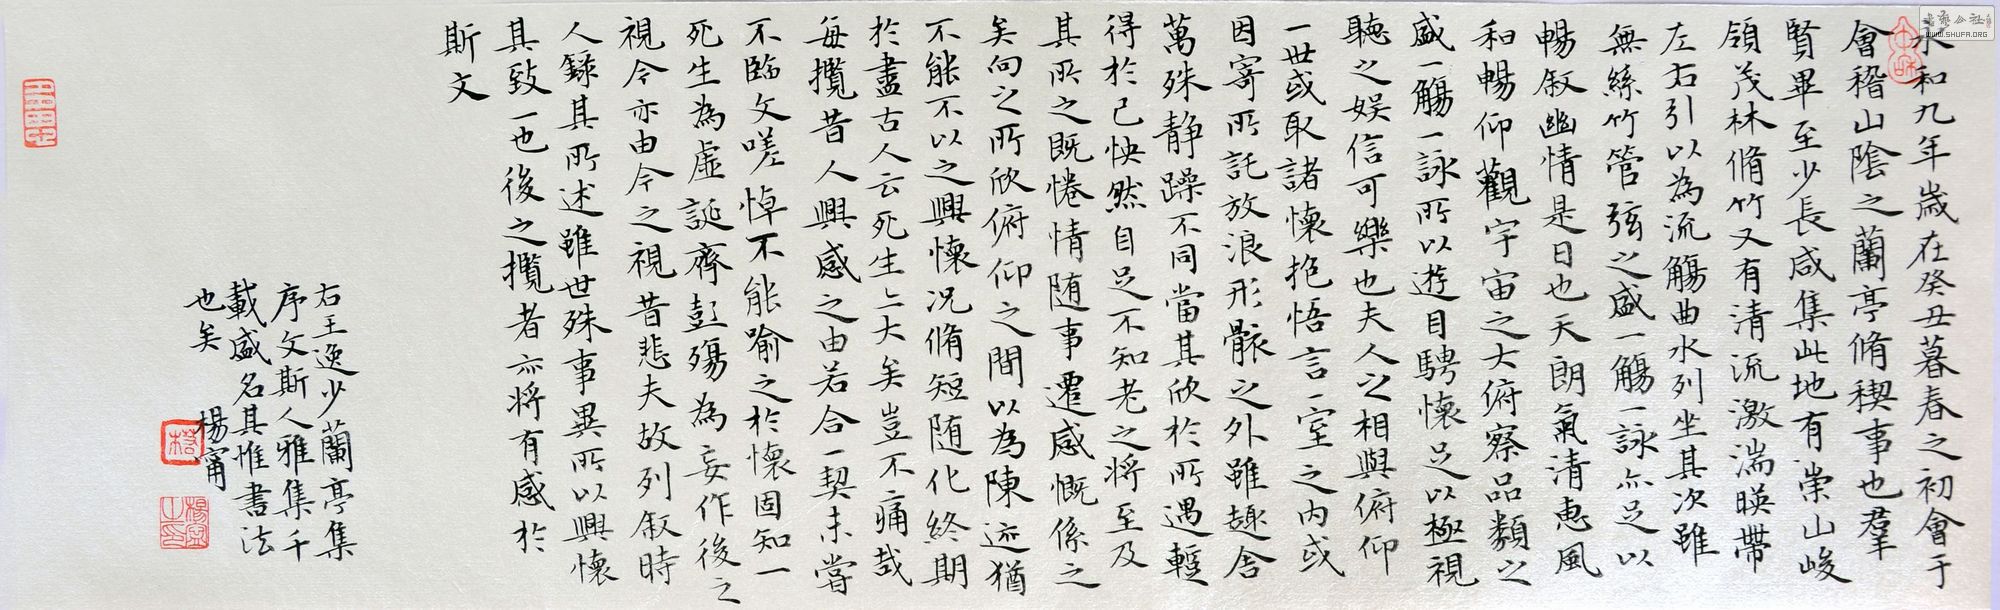 永和九年歲在癸丑暮春之初會于
會稽山陰之蘭亭脩稧事也羣
賢畢至少長咸集此地有崇山峻
領茂林脩竹又有清流激湍暎帶
左右引以為流觴曲水列坐其次雖
無絲竹管弦之盛一觴一詠亦足以
暢叙幽情是日也天朗氣清惠風
和暢仰觀宇宙之大俯察品類之
盛一觴一詠所以遊目騁懷足以極視
聽之娛信可樂也夫人之相與俯仰
一世或取諸懷抱悟言一室之内或
因寄所託放浪形骸之外雖趣舍
萬殊静躁不同當其欣於所遇蹔
得於己怏然自足不知老之將至及
其所之既惓情随事遷感慨係之
矣向之所欣俯仰之間以為陳迹猶
不能不以之興懷况脩短随化終期
於盡古人云死生亦大矣豈不痛哉
每攬昔人興感之由若合一契未嘗
不臨文嗟悼不能喻之於懷固知一
死生為虛誕齊彭殤為妄作後之
視今亦由今之視昔悲夫故列叙時
人錄其所述雖世殊事異所以興懷
其致一也後之攬者亦将有感於
斯文
右王逸少蘭亭集
序文斯人雅集千
載盛名其惟書法
也矣 楊甯
書藝公社
WWW.SHUFA.ORG